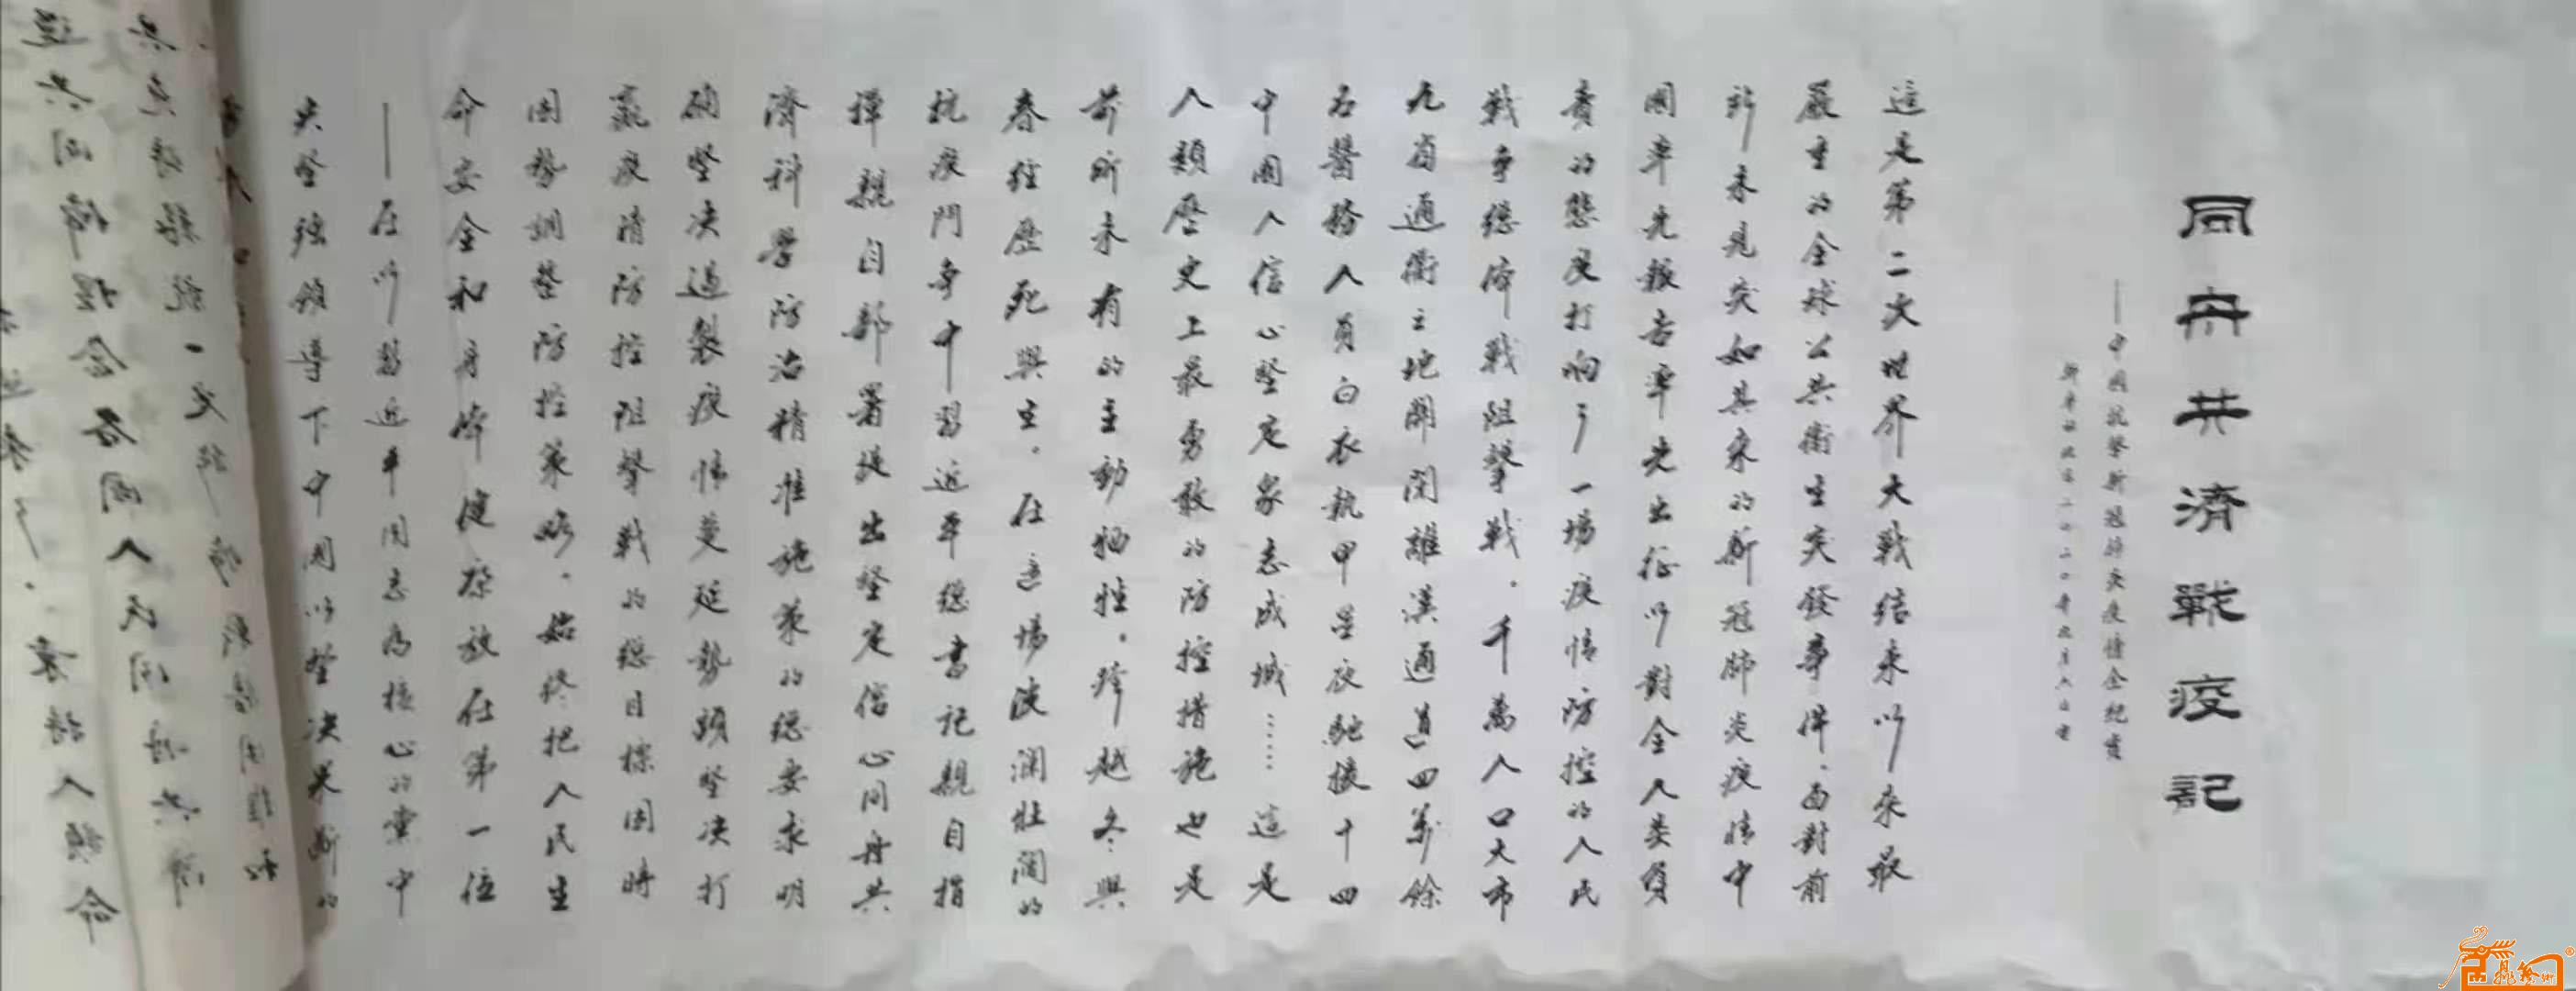 同舟共濟戰疫記
——中國抗擊新冠肺炎疫情全紀實
新華社北京二〇二〇年九月六日電
這是第二次世界大戰結束以來最
嚴重的全球公共衛生突發事件。面對前
所未見突如其來的新冠肺炎疫情中
國率先報告率先出征以對全人类負
責的態度打响了一場疫情防控的人民
戰争總体戰阻擊戰。千萬人口大市
九省通衢之地關閉離漢通道四萬餘
名醫務人員白衣執甲星夜馳援十四
中國人信心堅定衆志成城……這是
人類歷史上最勇敢的防控措施也是
前所未有的主動牺牲。跨越冬與
春經歷死與生。在這場波瀾壯闊的
抗疫鬥争中習近平總書記親自指
揮親自部署提出堅定信心同舟共
濟科學防治精准施策的總要求明
確堅决遏製疫情蔓延勢頭堅决打
贏疫情防控阻擊戰的總目標因時
因勢調整防控策略。始終把人民生
命安全和身体健康放在第一位
——在以習近平同志为核心的黨中
央堅强領導下中國以堅决果断的